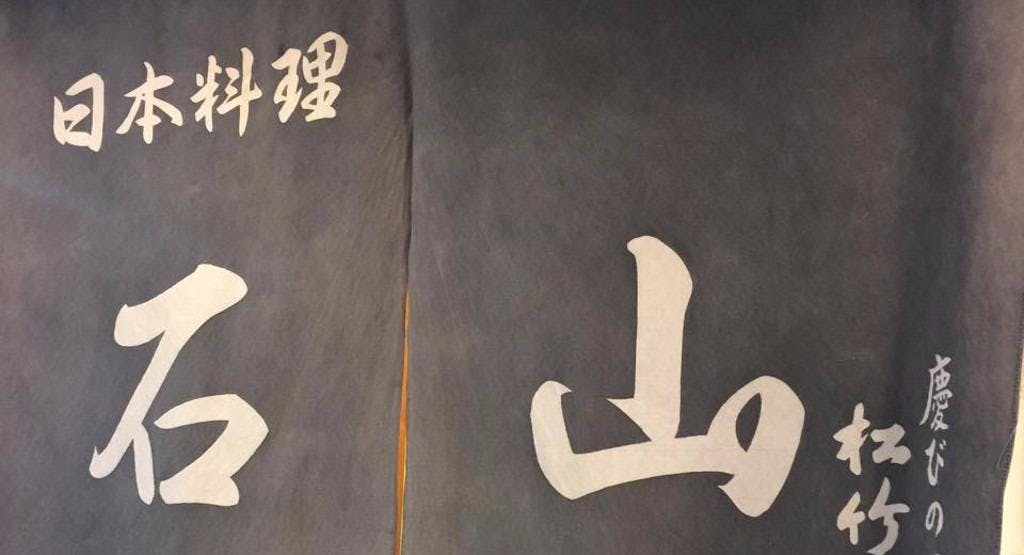 日本料理
石山
慶びの
松竹